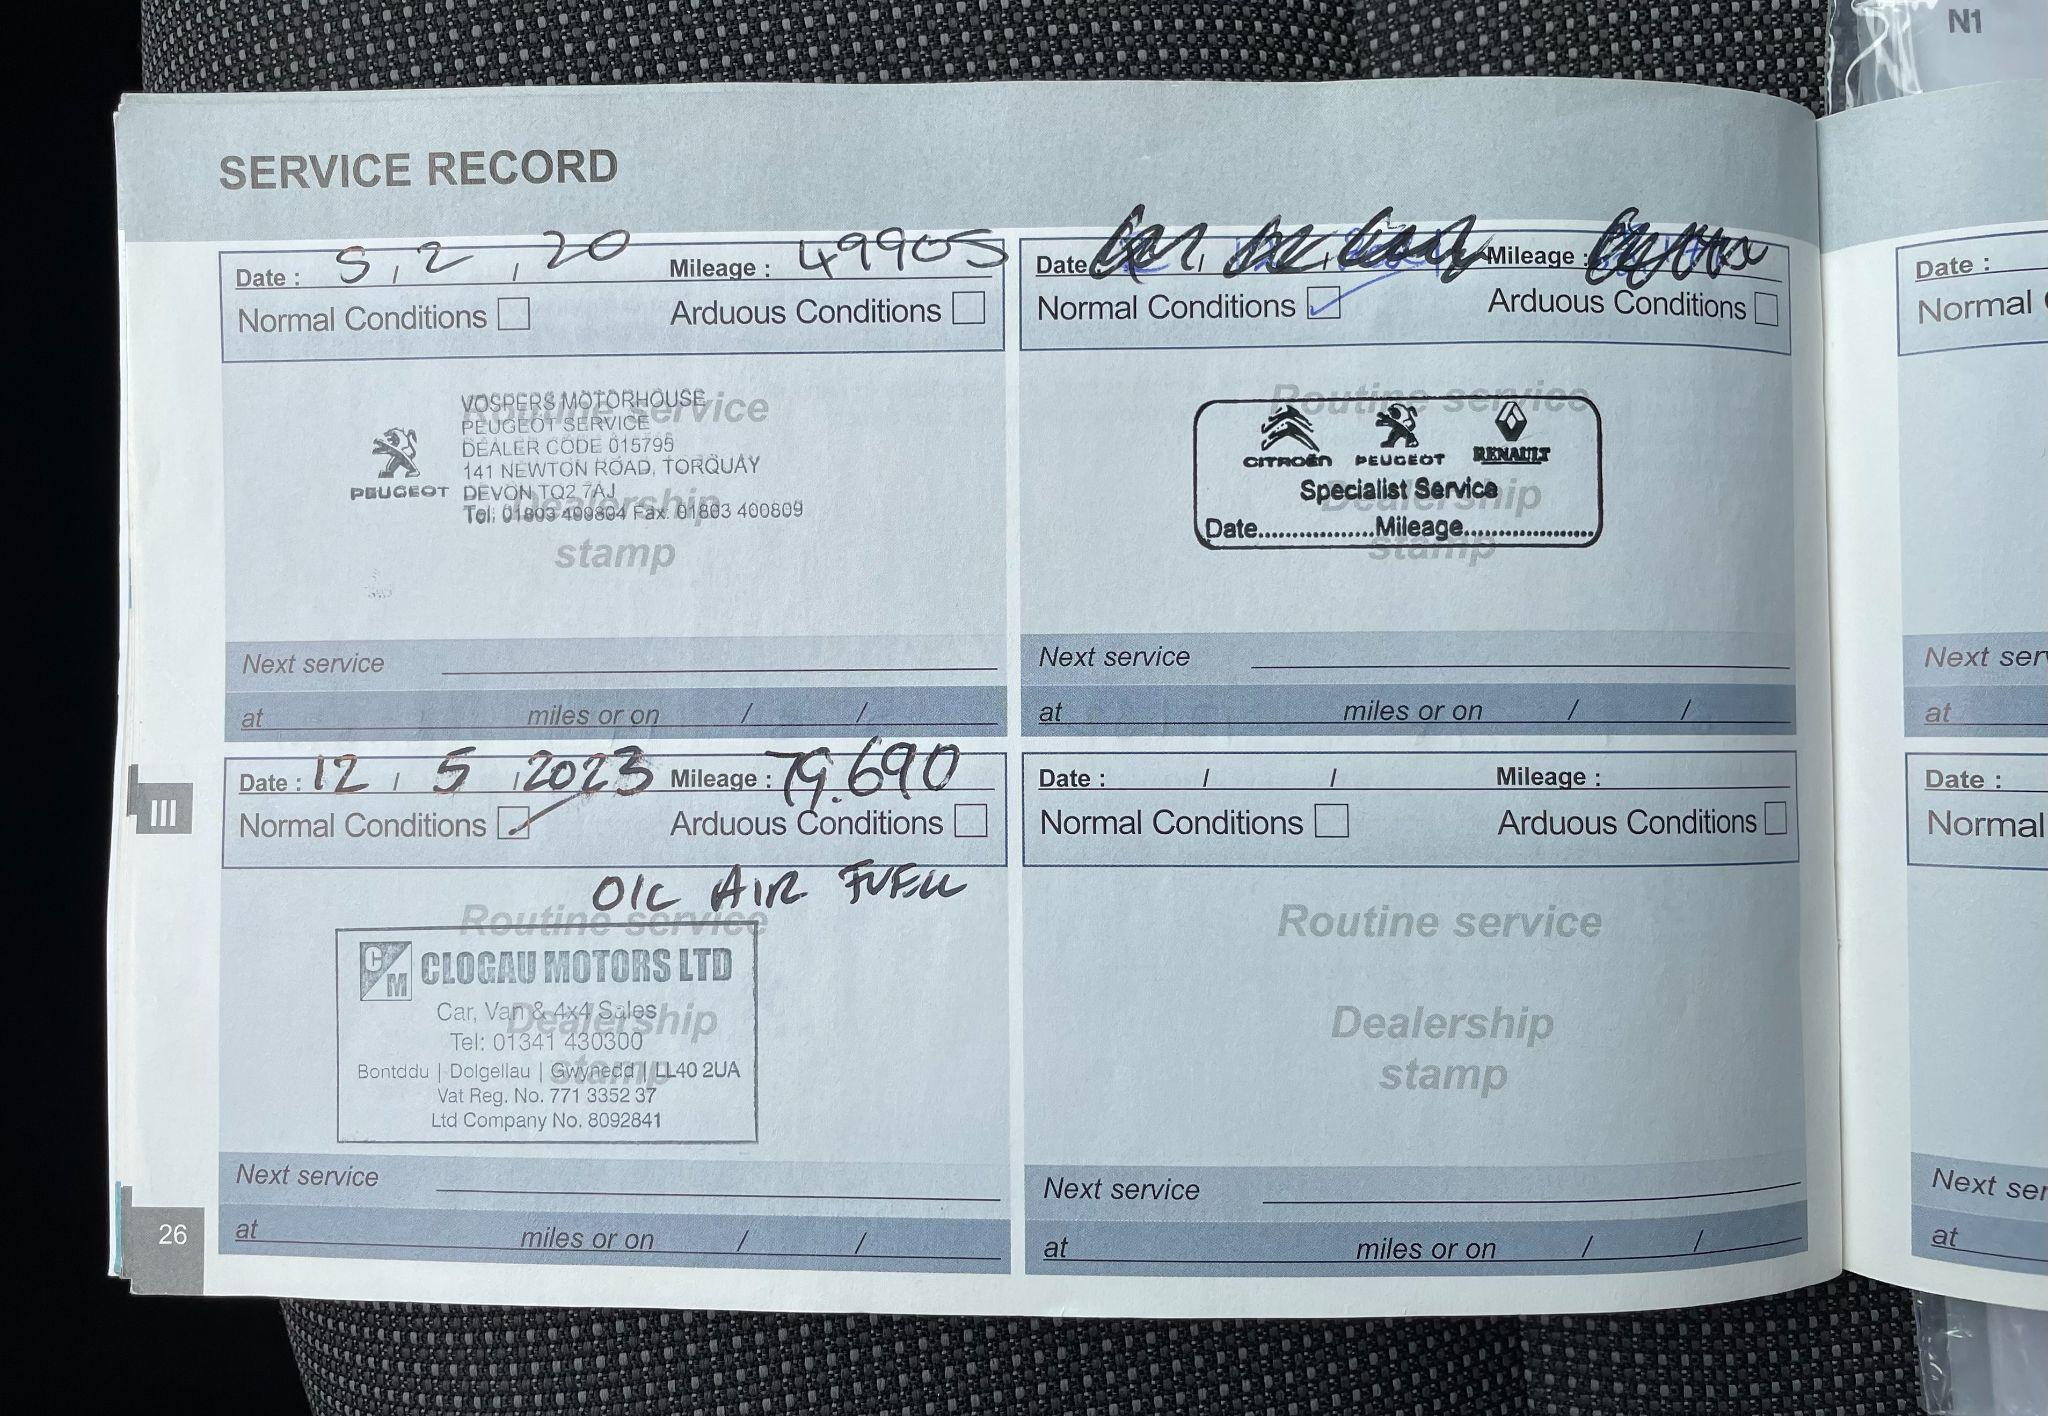 N1
SERVICE RECORD
Date : 5 , 2 , 20 Mileage : 49905
Normal Conditions Arduous Conditions
Routine service
VOSPERS MOTORHOUSE
PEUGEOT SERVICE
DEALER CODE 015795
141 NEWTON ROAD, TORQUAY
PEUGEOT DEVON TQ2 7AJ
Dealership
Tel: 01803 400804 Fax: 01803 400809
stamp
Next service
at miles or on / /
Date Mileage :
Normal Conditions Arduous Conditions
Routine service
CITROËN PEUGEOT RENAULT
Specialist Service
Dealership
Date.................Mileage....................
stamp
Next service
at miles or on / /
Date : 12 / 5 / 2023 Mileage : 79.690
Normal Conditions Arduous Conditions
OIL AIR FUEL
Routine service
CM CLOGAU MOTORS LTD
Car, Van & 4x4 Sales
Dealership
Tel: 01341 430300
stamp
Bontddu | Dolgellau | Gwynedd | LL40 2UA
Vat Reg. No. 771 3352 37
Ltd Company No. 8092841
Next service
at miles or on / /
Date : / / Mileage :
Normal Conditions Arduous Conditions
Routine service
Dealership
stamp
Next service
at miles or on / /
III
26
Date :
Normal
Next ser
at
Date :
Normal
Next ser
at